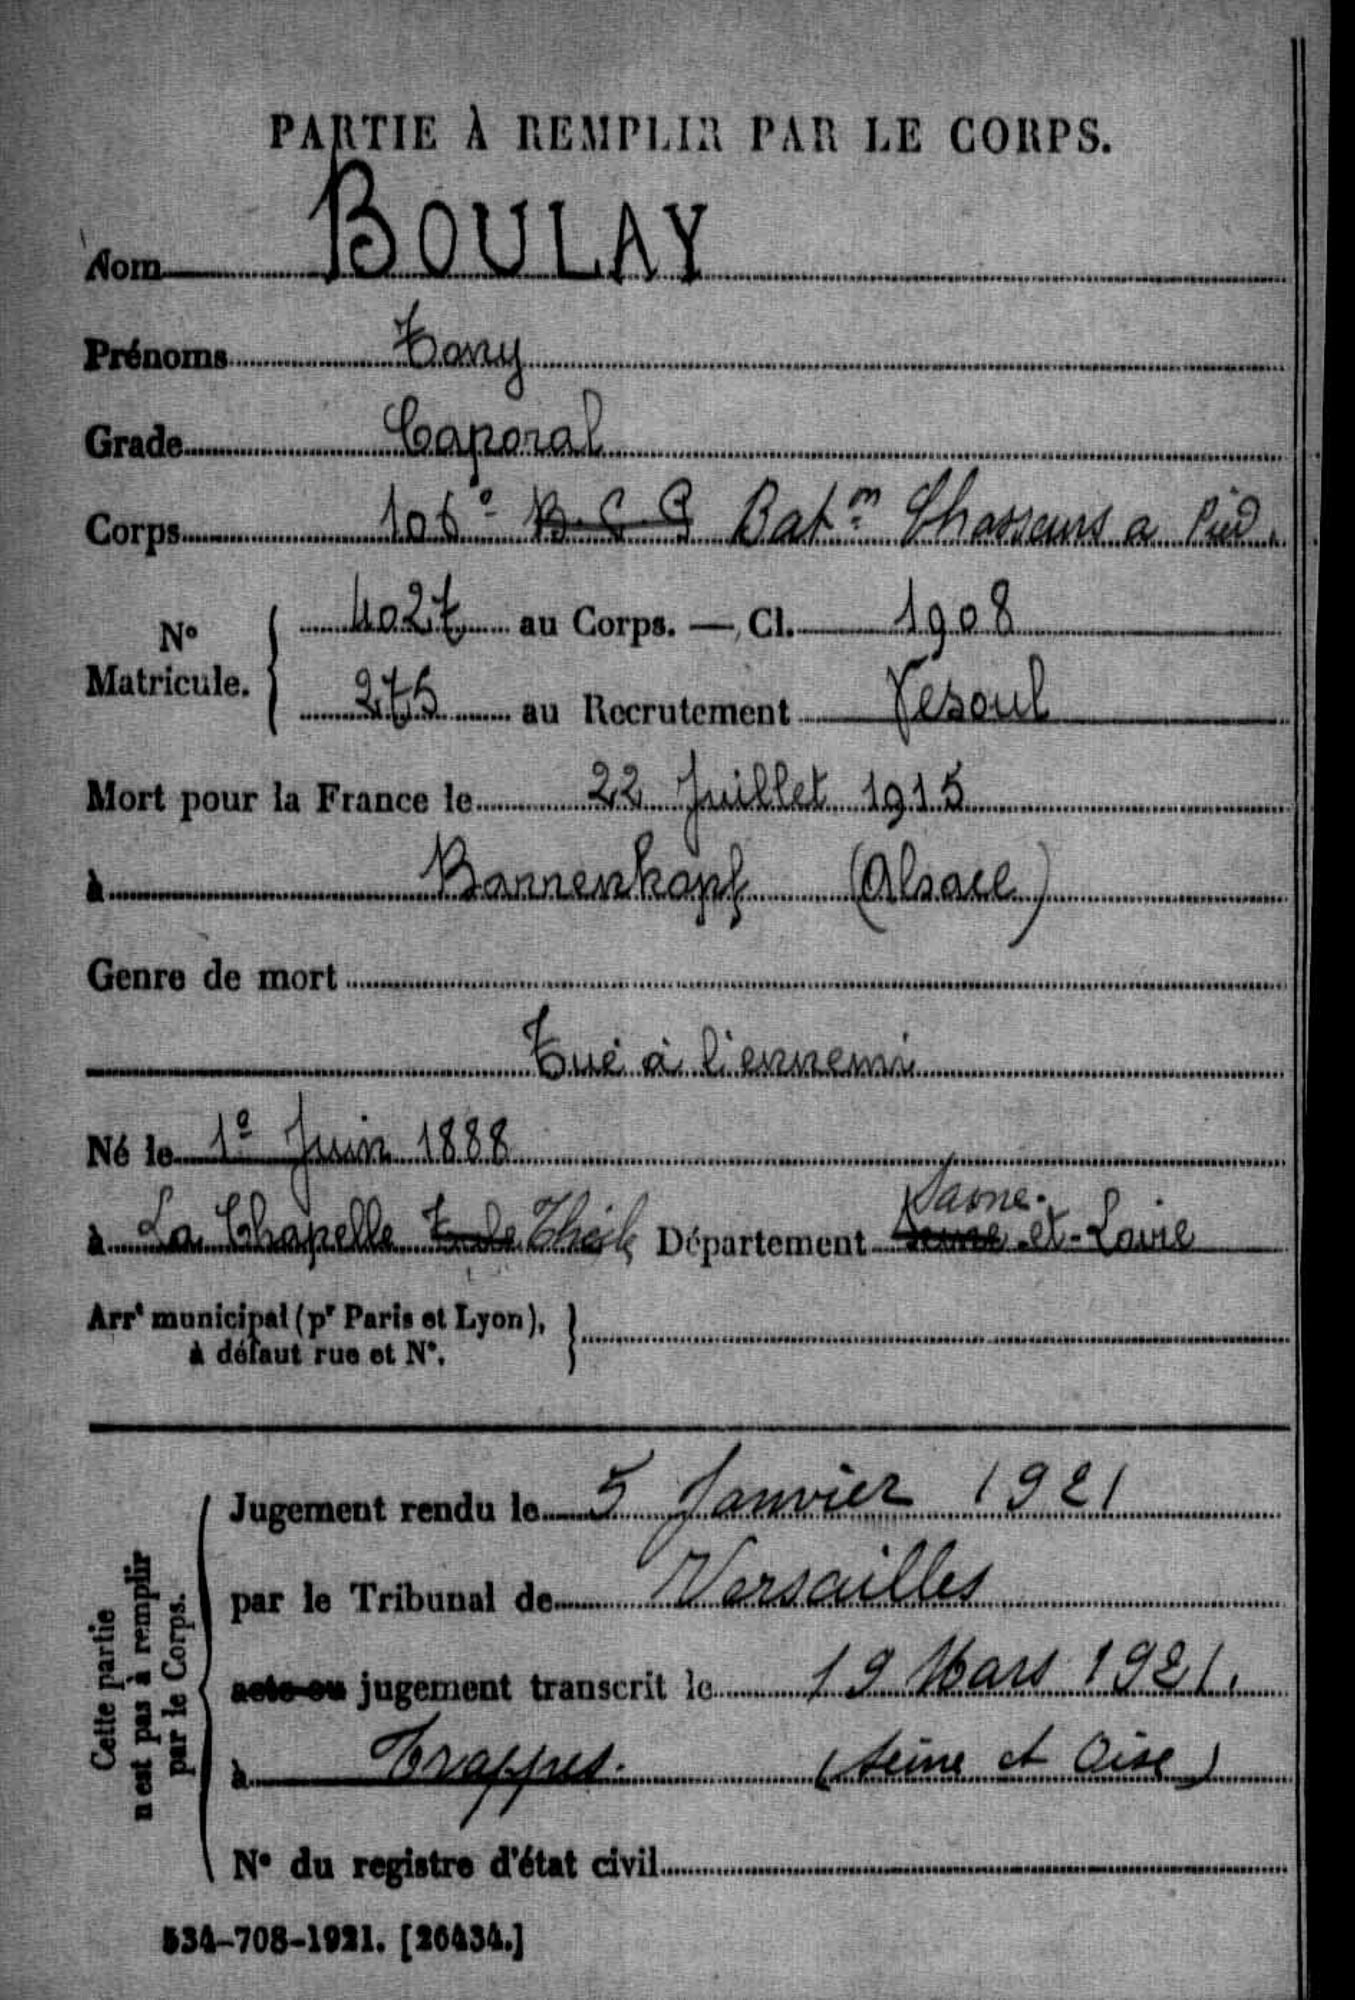 PARTIE À REMPLIR PAR LE CORPS.
Nom BOULAY
Prénoms Tony
Grade Caporal
Corps 106e B.C.P Bat.on Chasseurs a Pied.
N° Matricule. 4027 au Corps. — Cl. 1908
275 au Recrutement Vesoul
Mort pour la France le 22 Juillet 1915
à Bannenkopf (Alsace)
Genre de mort
Tué à l'ennemi
Né le 1e Juin 1888
Saone-
à La Chapelle Théele Département et-Loire
Arrt municipal (pr Paris et Lyon),
à défaut rue et N°.
Cette partie
n'est pas à remplir
par le Corps.
Jugement rendu le 5 Janvier 1921
par le Tribunal de Versailles
acte ou jugement transcrit le 19 Mars 1921.
à Trappes. (Seine et Oise)
N° du registre d'état civil
534-708-1921. [26434.]